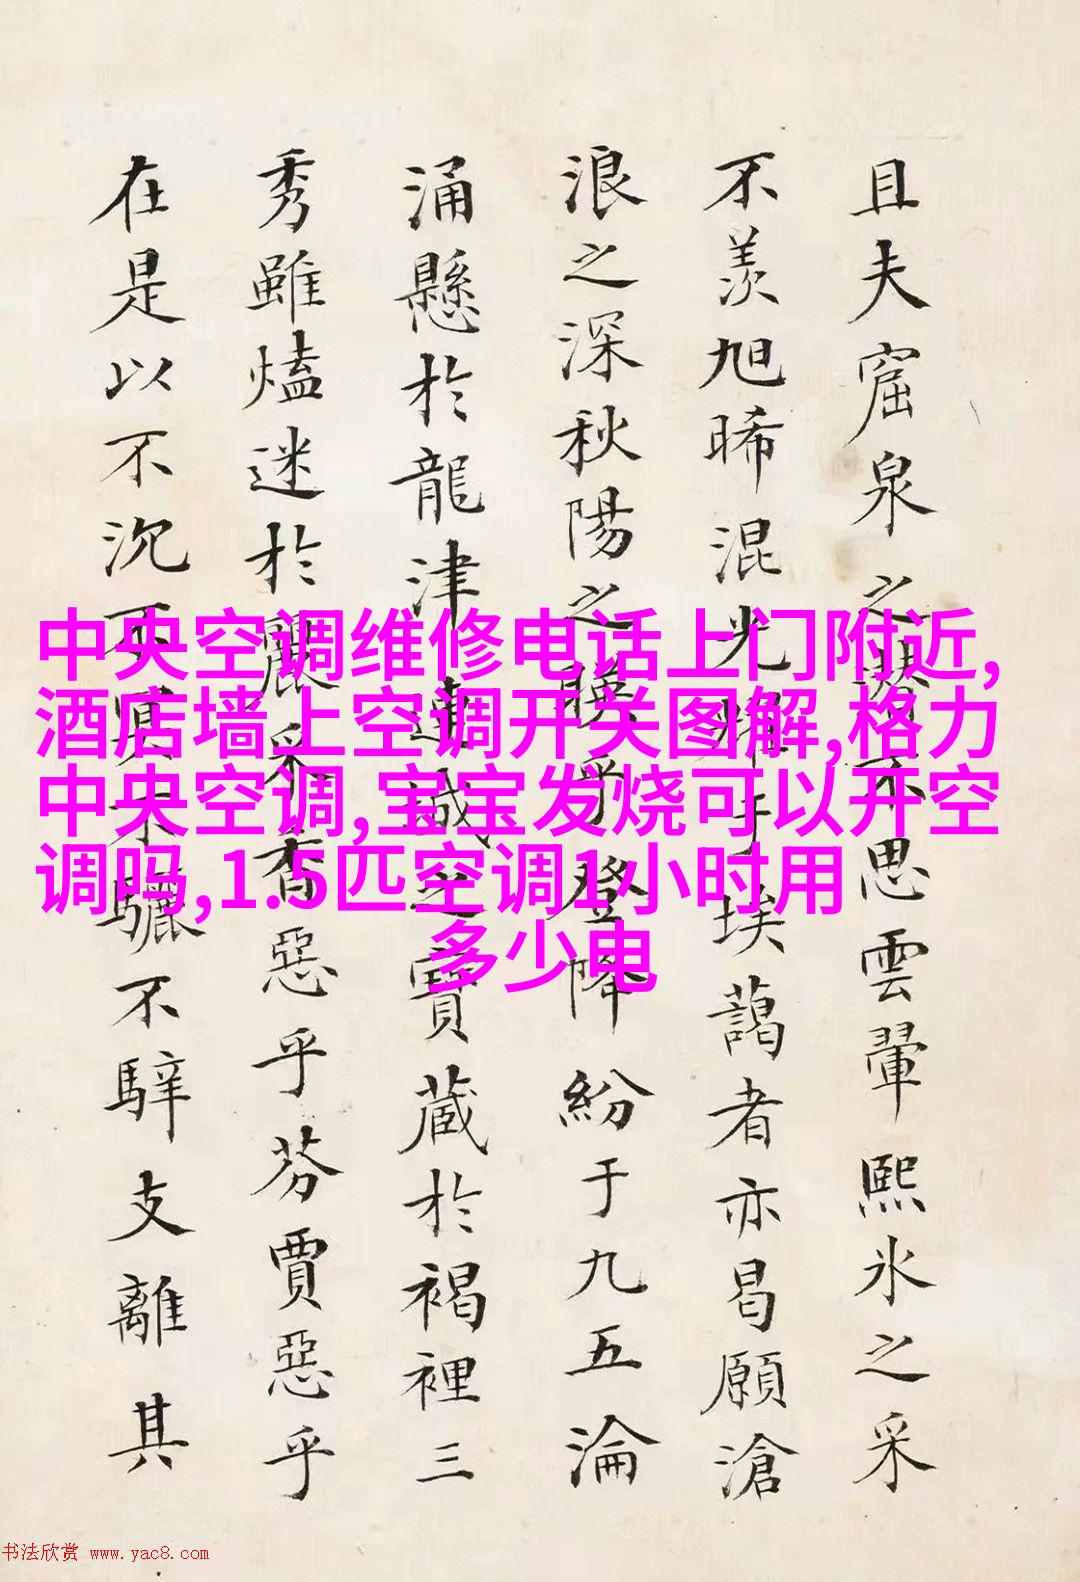 且夫窟泉之潔不思雲翬熙氷之采
不羡旭晞混光耀于埃藹者亦曷願滄
浪之深秋陽之暎乎登降紛于九五淪
涌懸於龍津連城之寶藏於褐裡三
秀雖熆迷於麗采香惡乎芬賈惡乎
在是以不沉不冥不驪不騂支離其
中央空调维修电话上门附近,
酒店墙上空调开关图解,格力
中央空调,宝宝发烧可以开空
调吗,1.5匹空调1小时用
多少电
书法欣赏 www.yac8.com